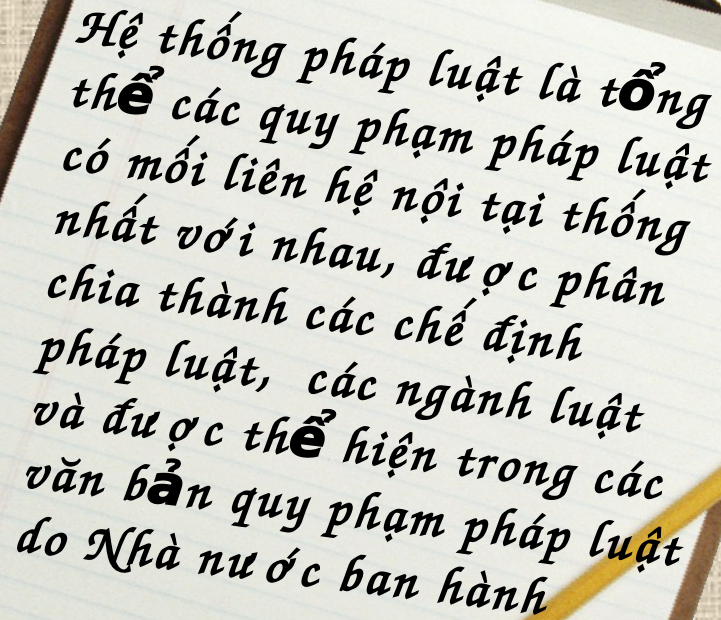 Hệ thống pháp luật là tổng
thể các quy phạm pháp luật
có mối liên hệ nội tại thống
nhất với nhau, được phân
chia thành các chế định
pháp luật, các ngành luật
và được thể hiện trong các
văn bản quy phạm pháp luật
do Nhà nước ban hành